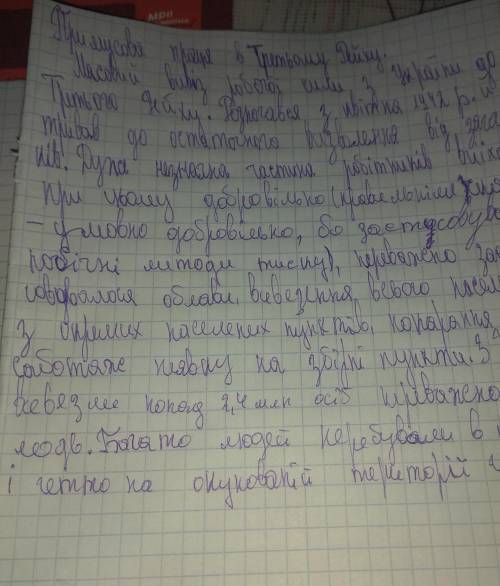 Примусова праця в Третьому Рейху.
Масовий вивіз робочої сили з України до
Третього Рейху. Розпочався з квітня 1942 р. і
тривав до остаточного визволення від зага
нів. Дуже незначна частина робітників виїха
при цьому добровільно (правильніше
– умовно добровільно, бо застосовува
методи тиску), переважно за
облави, вивезення всього насел
з окремих населених пунктів, покарання
саботаж неявку на збірні пункти. З
вивезли понад 2,4 млн осіб переважно
людь. Багато людей перебували в
і гетто на окупованій території